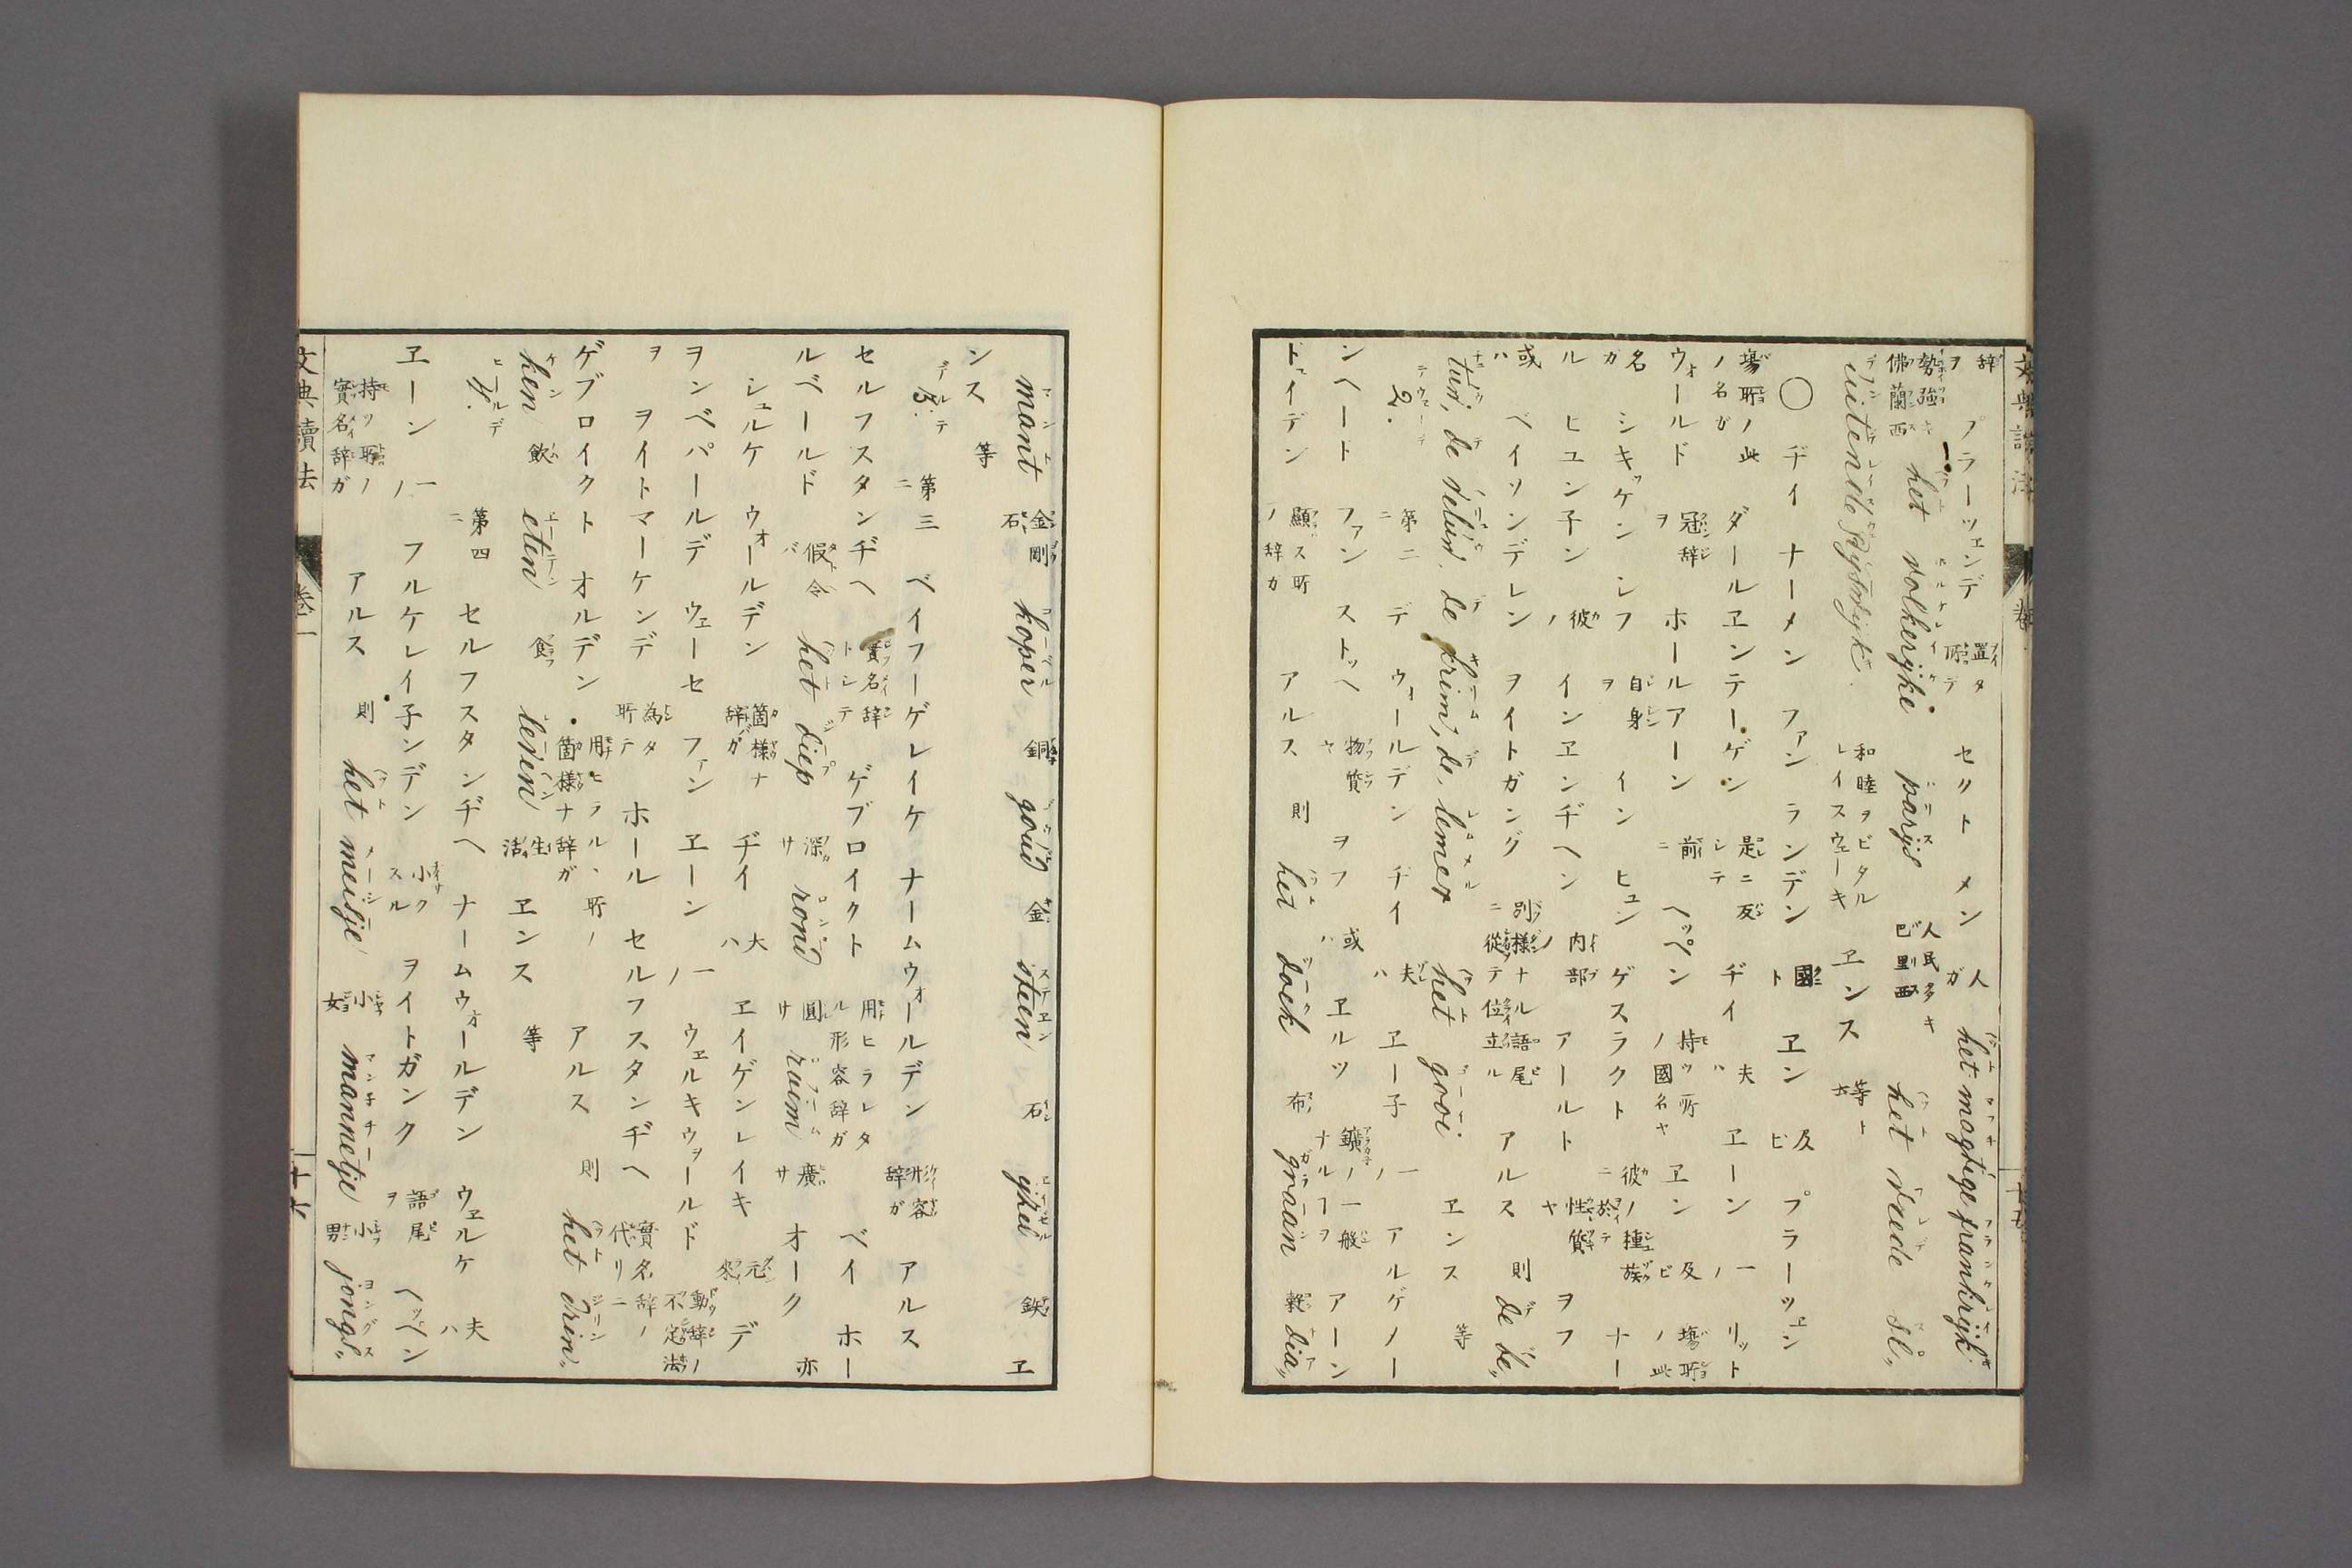 辞ヲ プラーツェンデ 置タ所デ セクト メン 人ガ het magtige frankrijk
勢強キ佛蘭西 het volkerijke parijs 人民多キ巴里斯 het vrede sl,,
uitende 和睦ヲビタル レイスウェーキ ヱンス 等ト
〇 ヂイ ナーメン ファン ランデン 國ト ヱン 及ビ プラーツェン
塲所ノ此ノ名ガ ダールヱンテーゲン 是ニ反シテ ヂイ 夫ハ ヱーン 一ノ リット
ウォールド 冠辞ヲ ホールアーン 前ニ ヘッペン 持ツ所ノ國名ヤ ヱン 及ビ 塲所ノ此
名ガ シキッケン シフ 自身ヲ イン ヒュン 彼ノ ゲスラクト 種族 ナー
ル ヒュン子ン 彼ノ インヱンヂヘン 内部ノ アールト 性質ヤ ヲフ
或ハ ベイソンデレン ヲイトガング 別様ナル語尾ニ從テ位立ル アルス 則 de be,,
de krim, de lemmer het gooi ヱンス 等
2. 第二ニ デ ウォールデン ヂイ 夫ハ ヱー子 一ノ アルゲメー
ンヘート ファン ストッヘ 物質ヤ ヲフ 或ハ ヱルツ 鑛ノ一般ナルヿヲ アーン
ドイデン 顯ス所ノ辞カ アルス 則 het doek 布 graan 穀 dia,,
mant 金剛石 koper 銅 goud 金 steen 石 ijzer 鉄 ヱ
ンス 等
3. 第三ニ ベイフーゲレイケ ナームウォールデン 形容辞ガ アルス
セルフスタンヂヘ 實名辞トシテ ゲブロイクト 用ヒラレタル形容辞ガ ベイ ホー
ルベールド 假令バ het diep 深サ rond 圓サ ruim 廣サ オーク 亦
シュルケ ウォールデン 箇様ナ辞ガ ヂイ 夫ハ ヱイゲンレイキ 元来 デ
ヲンベパールデ ウェーセ ファン ヱーン 一ノ ウェルキウォールド 動辞ノ不定法
ヲ ヲイトマーケンデ 為タ所テ ホール セルフスタンヂヘ 實名辞ノ代リニ
ゲブロイクト オルデン 用ヒラルヽ所ノ箇様ナ辞ガ アルス 則 het drin,,
ken 飲 eten 食 leven 生活 ヱンス 等
4. 第四ニ セルフスタンヂヘ ナームウォールデン ウェルケ 夫ハ
ヱーン 一ノ フルケレイ子ンデン 小クスル ヲイトガンク 語尾ヲ ヘッペン
持ツ所ノ實名辞ガ アルス 則 het meisje 小女 mannetje 小男 jongs,,
文典讀法 卷一